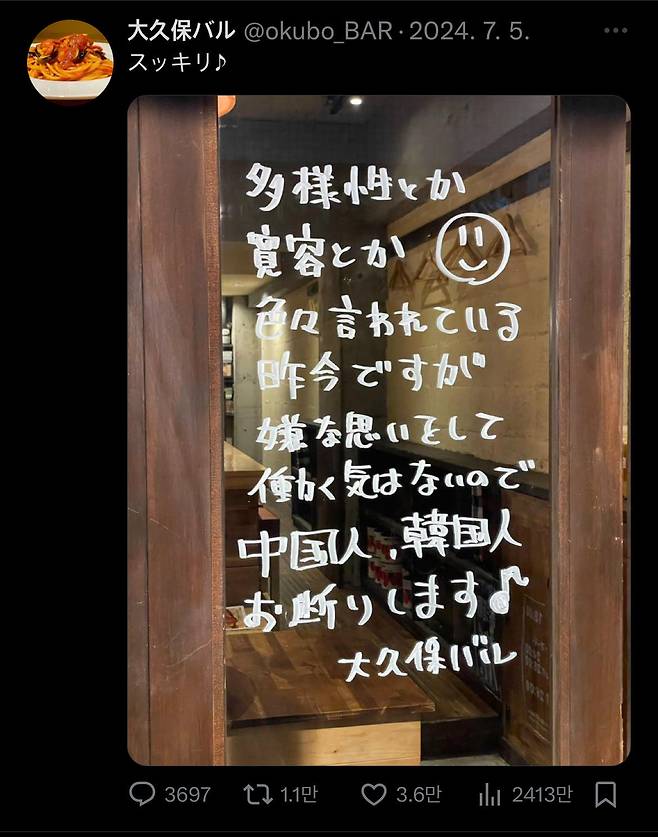 大久保バル @okubo_BAR · 2024. 7. 5.
スッキリ♪
多様性とか
寛容とか
色々言われている
昨今ですが
嫌な思いをして
働く気はないので
中国人、韓国人
お断りします♪
大久保バル
3697 1.1만 3.6만 2413만